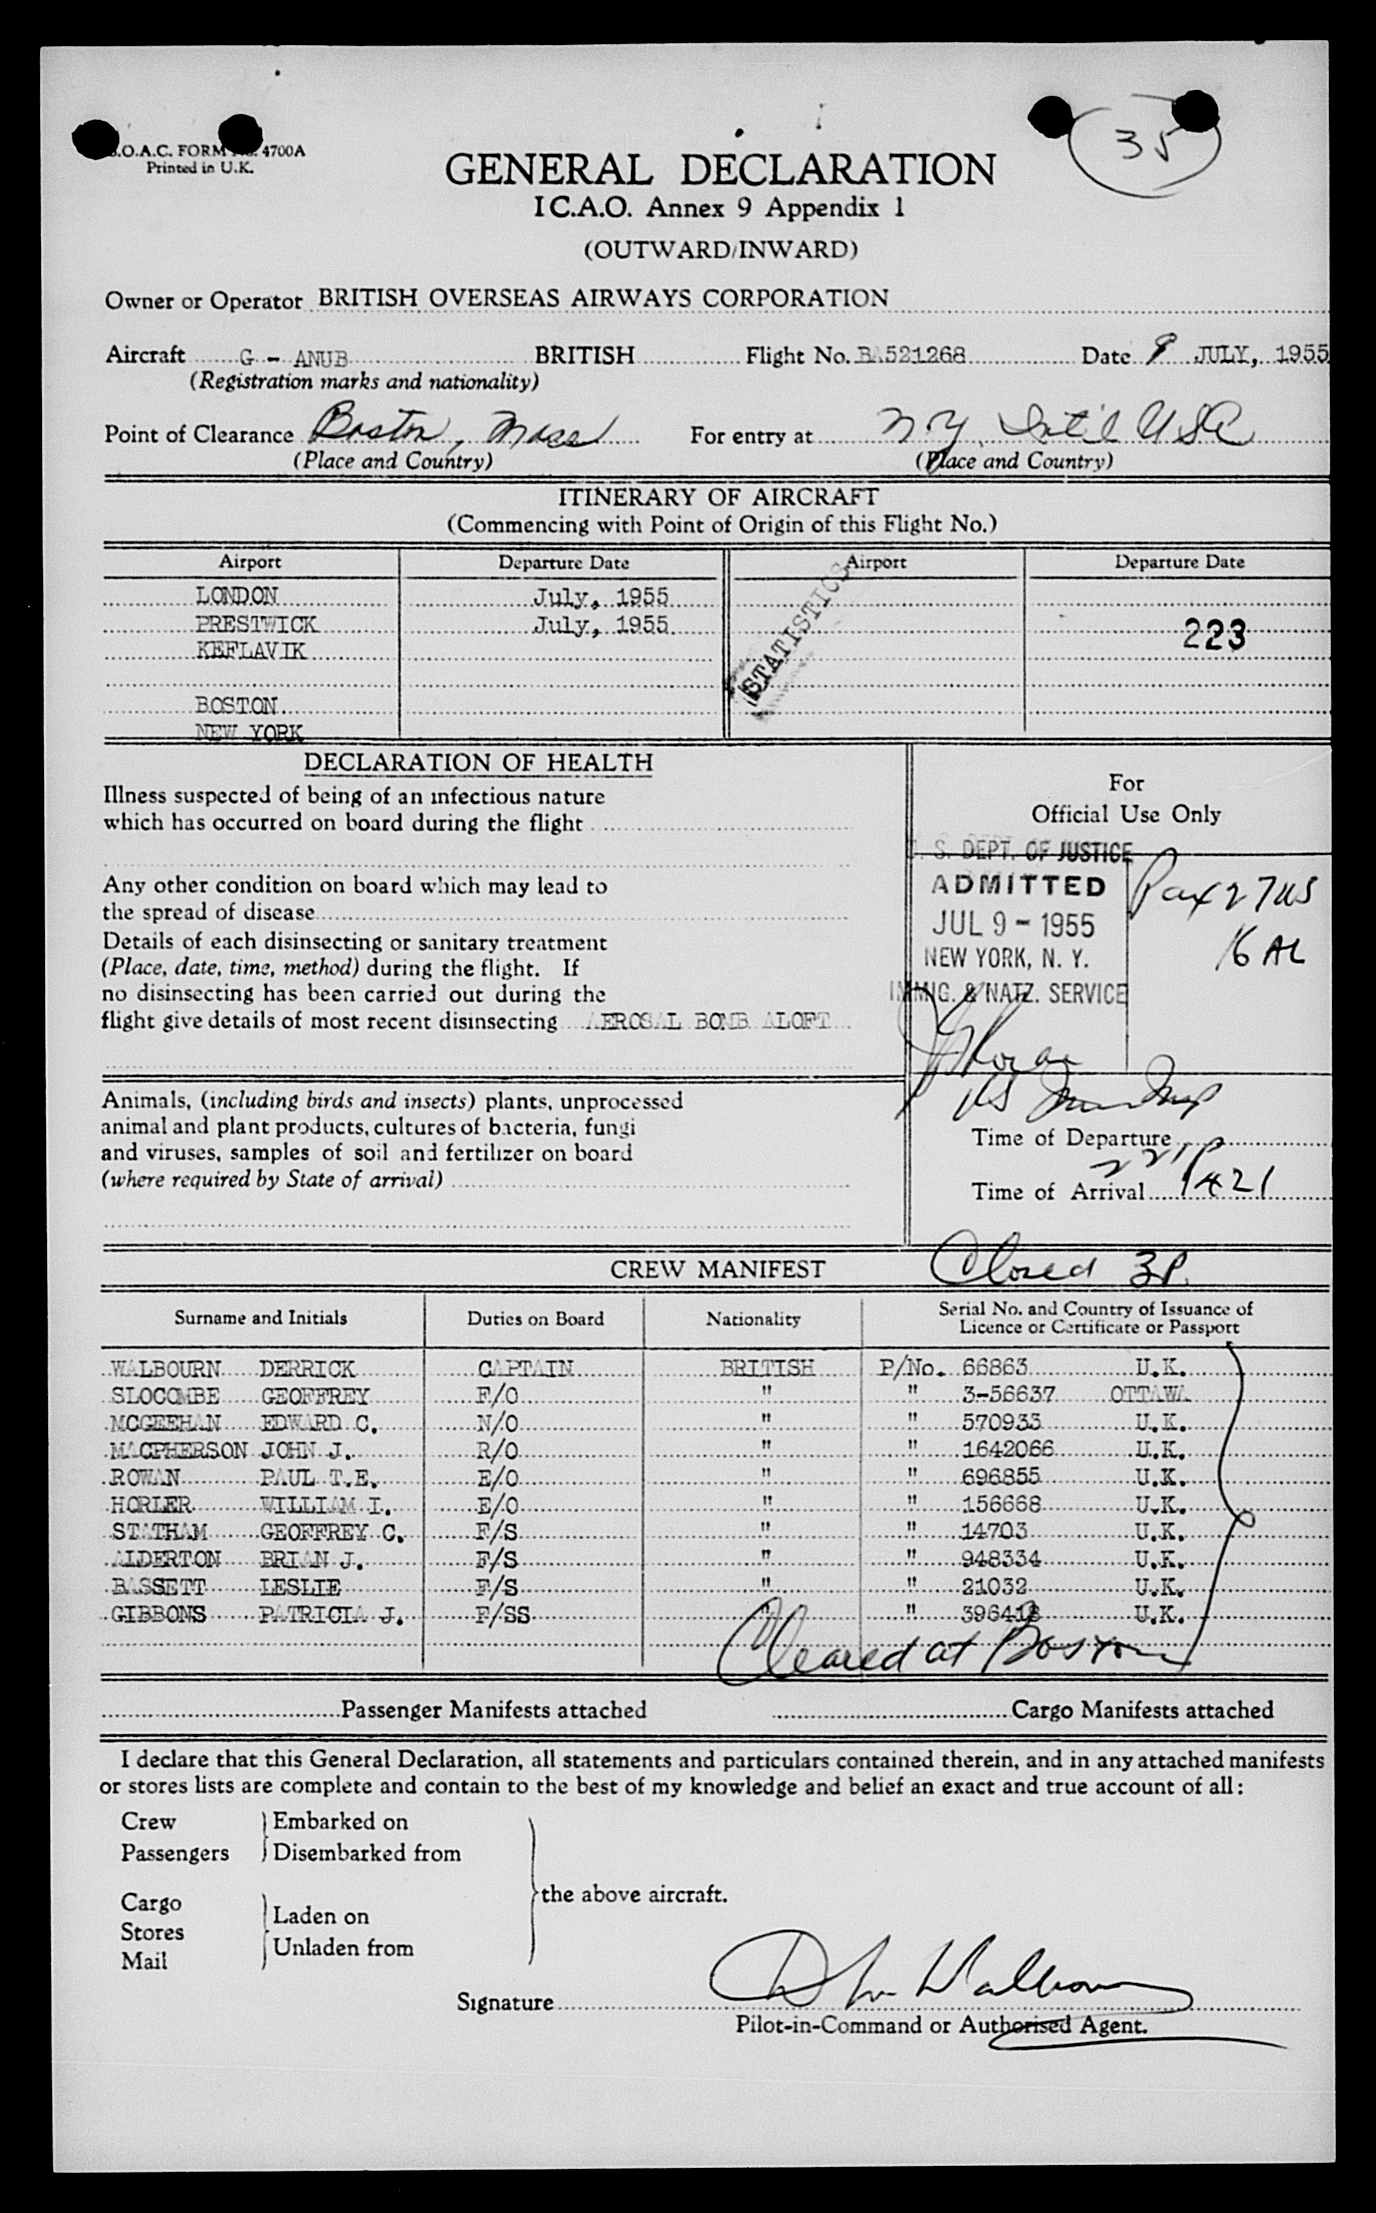 35
.O.A.C. FORM No. 4700A
Printed in U.K.
GENERAL DECLARATION
I C.A.O. Annex 9 Appendix 1
(OUTWARD/INWARD)
Owner or Operator BRITISH OVERSEAS AIRWAYS CORPORATION
Aircraft G - ANUB BRITISH Flight No. BA521268 Date 9 JULY, 1955
(Registration marks and nationality)
Point of Clearance Boston, Mass For entry at N.Y. Int'l USA
(Place and Country) (Place and Country)
ITINERARY OF AIRCRAFT
(Commencing with Point of Origin of this Flight No.)
Airport Departure Date Airport Departure Date
LONDON July, 1955
PRESTWICK July, 1955 223
KEFLAVIK
STATISTICS
BOSTON
NEW YORK
DECLARATION OF HEALTH
Illness suspected of being of an infectious nature
which has occurred on board during the flight
Any other condition on board which may lead to
the spread of disease
Details of each disinsecting or sanitary treatment
(Place, date, time, method) during the flight. If
no disinsecting has been carried out during the
flight give details of most recent disinsecting AEROSAL BOMB ALOFT
Animals, (including birds and insects) plants, unprocessed
animal and plant products, cultures of bacteria, fungi
and viruses, samples of soil and fertilizer on board
(where required by State of arrival)
For
Official Use Only
U. S. DEPT. OF JUSTICE
ADMITTED
JUL 9 - 1955
NEW YORK, N. Y.
IMMIG. & NATZ. SERVICE
Pax 27 US
16 AL
US
Time of Departure
221P
Time of Arrival 1421
Closed 3P.
CREW MANIFEST
Surname and Initials Duties on Board Nationality Serial No. and Country of Issuance of
Licence or Certificate or Passport
WALBOURN DERRICK CAPTAIN BRITISH P/No. 66863 U.K.
SLOCOMBE GEOFFREY F/O " " 3-56637 OTTAWA
MCGEEHAN EDWARD C. N/O " " 570933 U.K.
MACPHERSON JOHN J. R/O " " 1642066 U.K.
ROWAN PAUL T.E. E/O " " 696855 U.K.
HORLER WILLIAM I. E/O " " 156668 U.K.
STATHAM GEOFFREY C. F/S " " 14703 U.K.
ALDERTON BRIAN J. F/S " " 948334 U.K.
BASSETT LESLIE F/S " " 21032 U.K.
GIBBONS PATRICIA J. F/SS " " 396418 U.K.
Cleared at Boston
Passenger Manifests attached Cargo Manifests attached
I declare that this General Declaration, all statements and particulars contained therein, and in any attached manifests
or stores lists are complete and contain to the best of my knowledge and belief an exact and true account of all:
Crew Embarked on
Passengers Disembarked from
the above aircraft.
Cargo
Stores Laden on
Mail Unladen from
Signature D Walbourn
Pilot-in-Command or Authorised Agent.